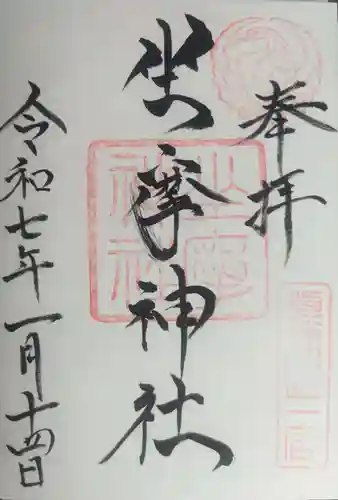 奉拝
坐摩神社
令和七年一月十四日